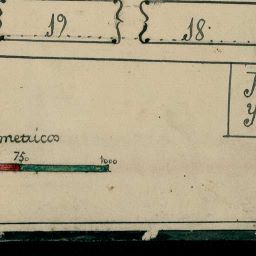 19 18
metricos
750 1000